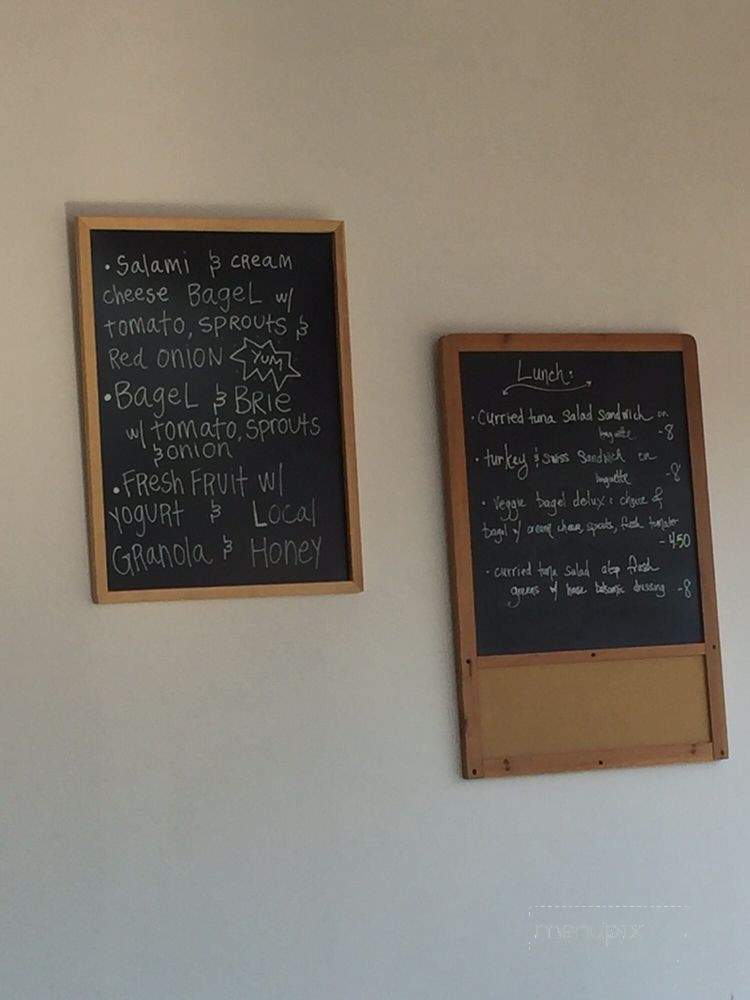 • Salami & cream
cheese Bagel w/
tomato, sprouts &
Red onion YUM
• Bagel & BRIE
w/ tomato, sprouts
& onion
• Fresh Fruit w/
yogurt & Local
Granola & Honey
Lunch:
• Curried tuna salad sandwich on
baguette -8
• turkey & swiss sandwich on
baguette -8
• veggie bagel delux: choice of
bagel w/ cream cheese, sprouts, fresh tomato
-4.50
• curried tuna salad atop fresh
greens w/ house balsamic dressing -8
menupix